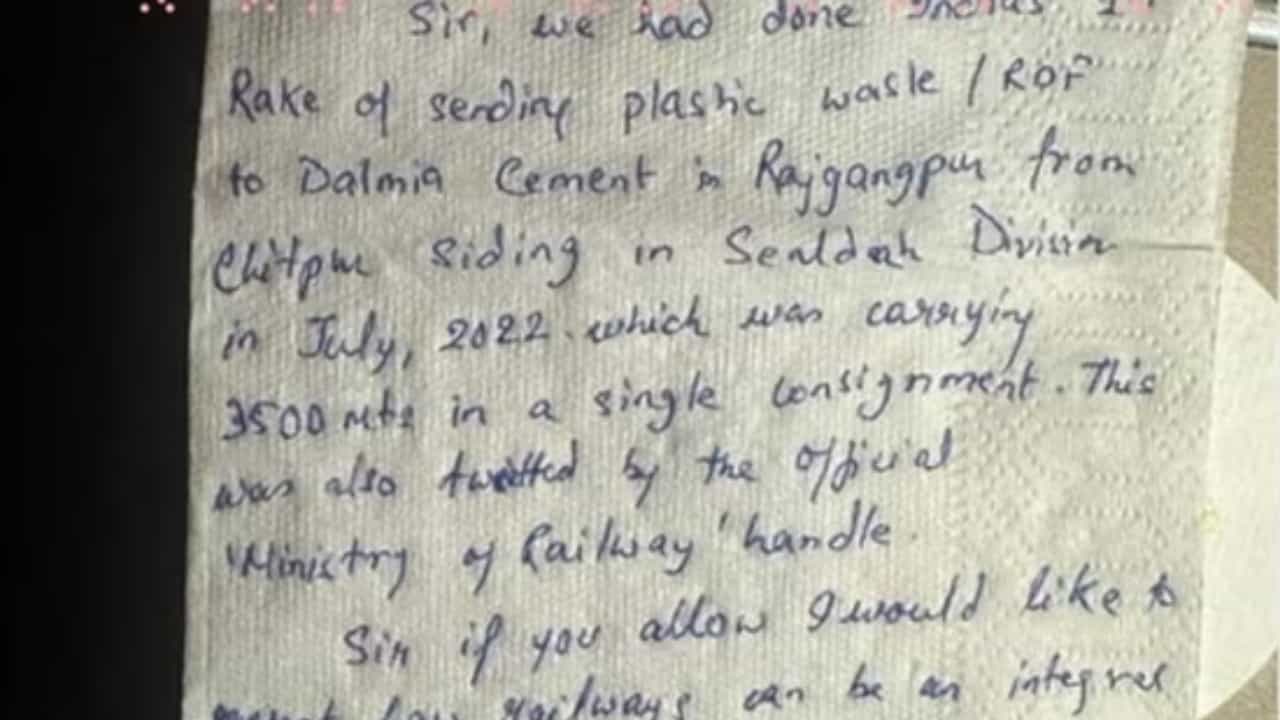 Sir, we had done Indias 1st
Rake of sending plastic waste / RDF
to Dalmia Cement in Rajgangpur from
Chitpur siding in Sealdah Division
in July, 2022 which was carrying
3500 mts in a single consignment. This
was also twitted by the official
'Ministry of Railway' handle.
Sir if you allow I would like to
present how railways can be an integral